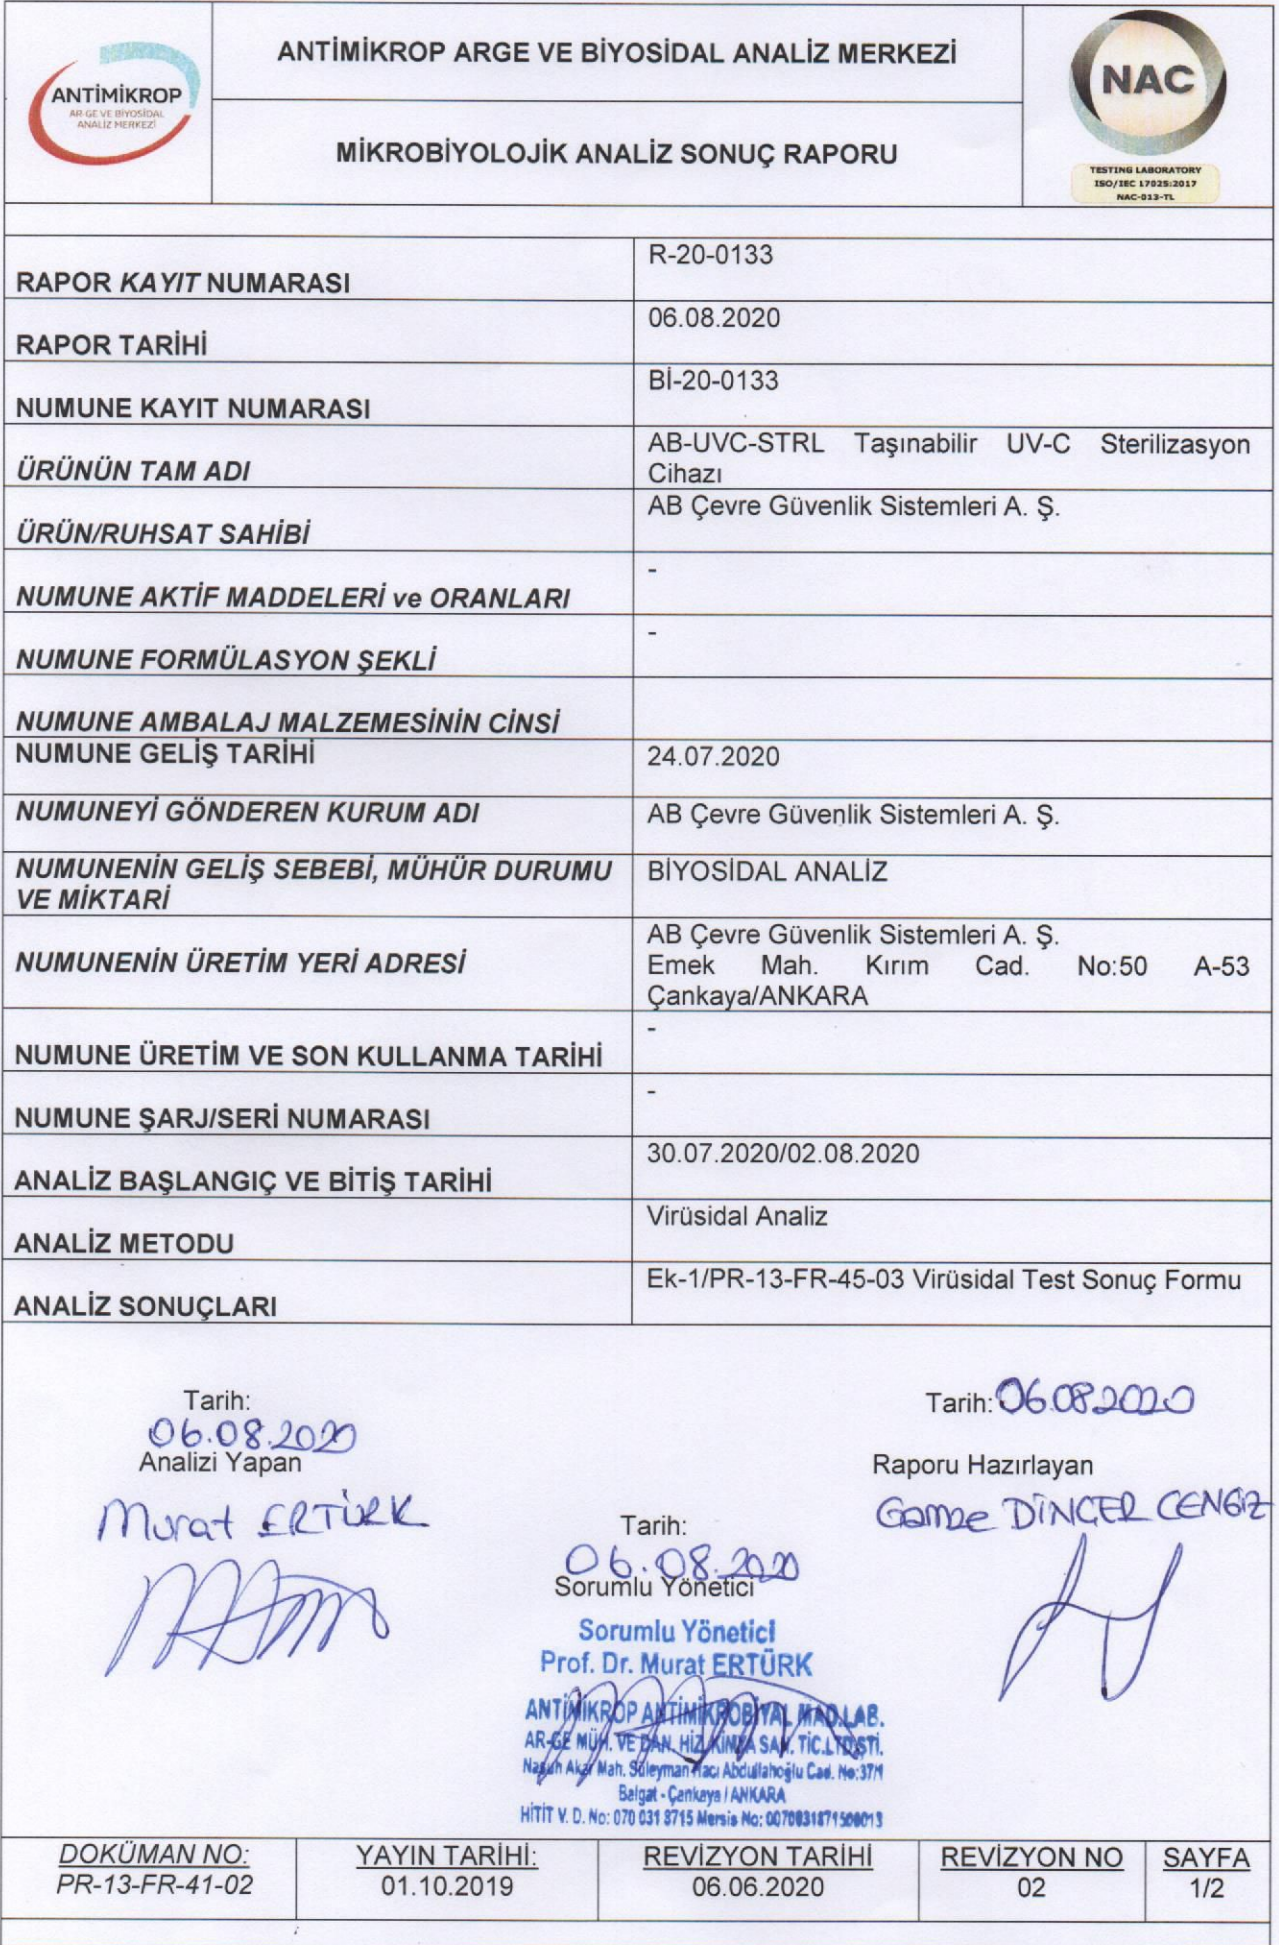 ANTİMİKROP
AR-GE VE BİYOSİDAL
ANALİZ MERKEZİ
ANTİMİKROP ARGE VE BİYOSİDAL ANALİZ MERKEZİ
MİKROBİYOLOJİK ANALİZ SONUÇ RAPORU
NAC
TESTING LABORATORY
ISO/IEC 17025:2017
NAC-013-TL
RAPOR KAYIT NUMARASI
R-20-0133
RAPOR TARİHİ
06.08.2020
NUMUNE KAYIT NUMARASI
Bİ-20-0133
ÜRÜNÜN TAM ADI
AB-UVC-STRL Taşınabilir UV-C Sterilizasyon
Cihazı
ÜRÜN/RUHSAT SAHİBİ
AB Çevre Güvenlik Sistemleri A. Ş.
NUMUNE AKTİF MADDELERİ ve ORANLARI
-
NUMUNE FORMÜLASYON ŞEKLİ
-
NUMUNE AMBALAJ MALZEMESİNİN CİNSİ
NUMUNE GELİŞ TARİHİ
24.07.2020
NUMUNEYİ GÖNDEREN KURUM ADI
AB Çevre Güvenlik Sistemleri A. Ş.
NUMUNENİN GELİŞ SEBEBİ, MÜHÜR DURUMU
VE MİKTARİ
BİYOSİDAL ANALİZ
NUMUNENİN ÜRETİM YERİ ADRESİ
AB Çevre Güvenlik Sistemleri A. Ş.
Emek Mah. Kırım Cad. No:50 A-53
Çankaya/ANKARA
NUMUNE ÜRETİM VE SON KULLANMA TARİHİ
-
NUMUNE ŞARJ/SERİ NUMARASI
-
ANALİZ BAŞLANGIÇ VE BİTİŞ TARİHİ
30.07.2020/02.08.2020
ANALİZ METODU
Virüsidal Analiz
ANALİZ SONUÇLARI
Ek-1/PR-13-FR-45-03 Virüsidal Test Sonuç Formu
Tarih:
06.08.2020
Analizi Yapan
Murat ERTÜRK
Tarih: 06.08.2020
Raporu Hazırlayan
Gamze DİNÇER CENGİZ
Tarih:
06.08.2020
Sorumlu Yönetici
Sorumlu Yönetici
Prof. Dr. Murat ERTÜRK
ANTİMİKROP ANTİMİKROBİYAL MAD.LAB.
AR-GE MÜH. VE DAN. HİZ. KİMYA SAN. TİC.LTD.ŞTİ.
Nasuh Akar Mah. Süleyman Hacı Abdullahoğlu Cad. No:37/1
Balgat - Çankaya / ANKARA
HİTİT V. D. No: 070 031 8715 Mersis No:
DOKÜMAN NO:
PR-13-FR-41-02
YAYIN TARİHİ:
01.10.2019
REVİZYON TARİHİ
06.06.2020
REVİZYON NO
02
SAYFA
1/2